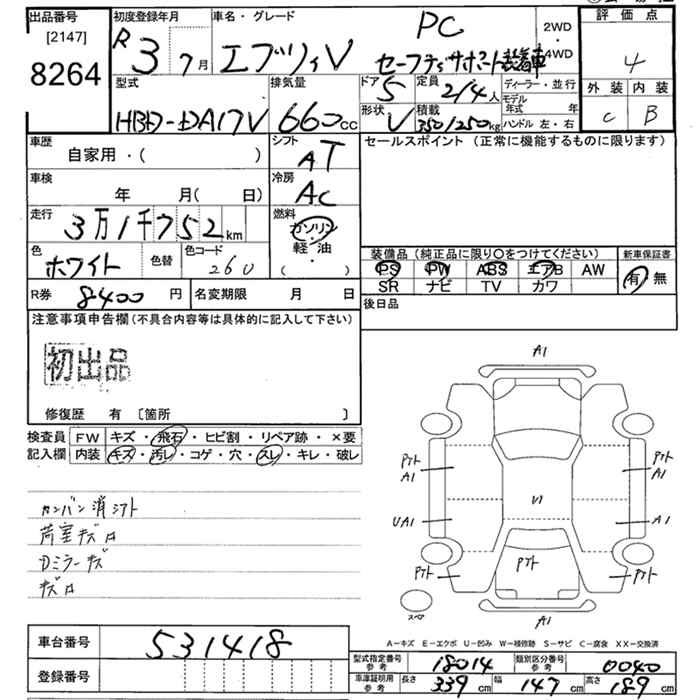 出品番号
[2147]
8264
初度登録年月
R 3 7月
車名・グレード
エブリィV
PC
セーフティサポート装着車
2WD
・
4WD
評価点
4
外装 内装
C B
型式
HBD-DA17V
排気量
660cc
ドア
5
定員
2/4人
ディーラー・並行
モデル年式 年
形状
V
積載
350/250kg
ハンドル 左・右
車歴
自家用・( )
シフト
AT
セールスポイント (正常に機能するものに限ります)
車検
年 月( 日)
冷房
AC
走行
3万1千752km
燃料
ガソリン
軽・油
( )
色
ホワイト
色替
色コード
260
装備品 (純正品に限り○をつけてください)
新車保証書
PS PW ABS エアB AW
SR ナビ TV カワ
有・無
R券 8400円
名変期限 月 日
後日品
注意事項申告欄 (不具合内容等は具体的に記入して下さい)
初出品
修復歴 有 〔箇所 〕
検査員
記入欄
FW キズ・飛石・ヒビ割・リペア跡・×要
内装 キズ・汚レ・コゲ・穴・スレ・キレ・破レ
カンバン消シアト
荷室キズロ
Dミラーキズ
キズロ
A1
Pアト
A1
Pアト
A1
V1
UA1
A1
Pアト
Pアト
Pアト
スペア
A1
A−キズ E−エクボ U−凹み W−補修跡 S−サビ C−腐食 XX−交換済
車台番号
531418
登録番号
型式指定番号
参考
18014
類別区分番号
参考
0040
車庫証明用
参考
長さ 339cm 幅 147cm 高さ 189cm